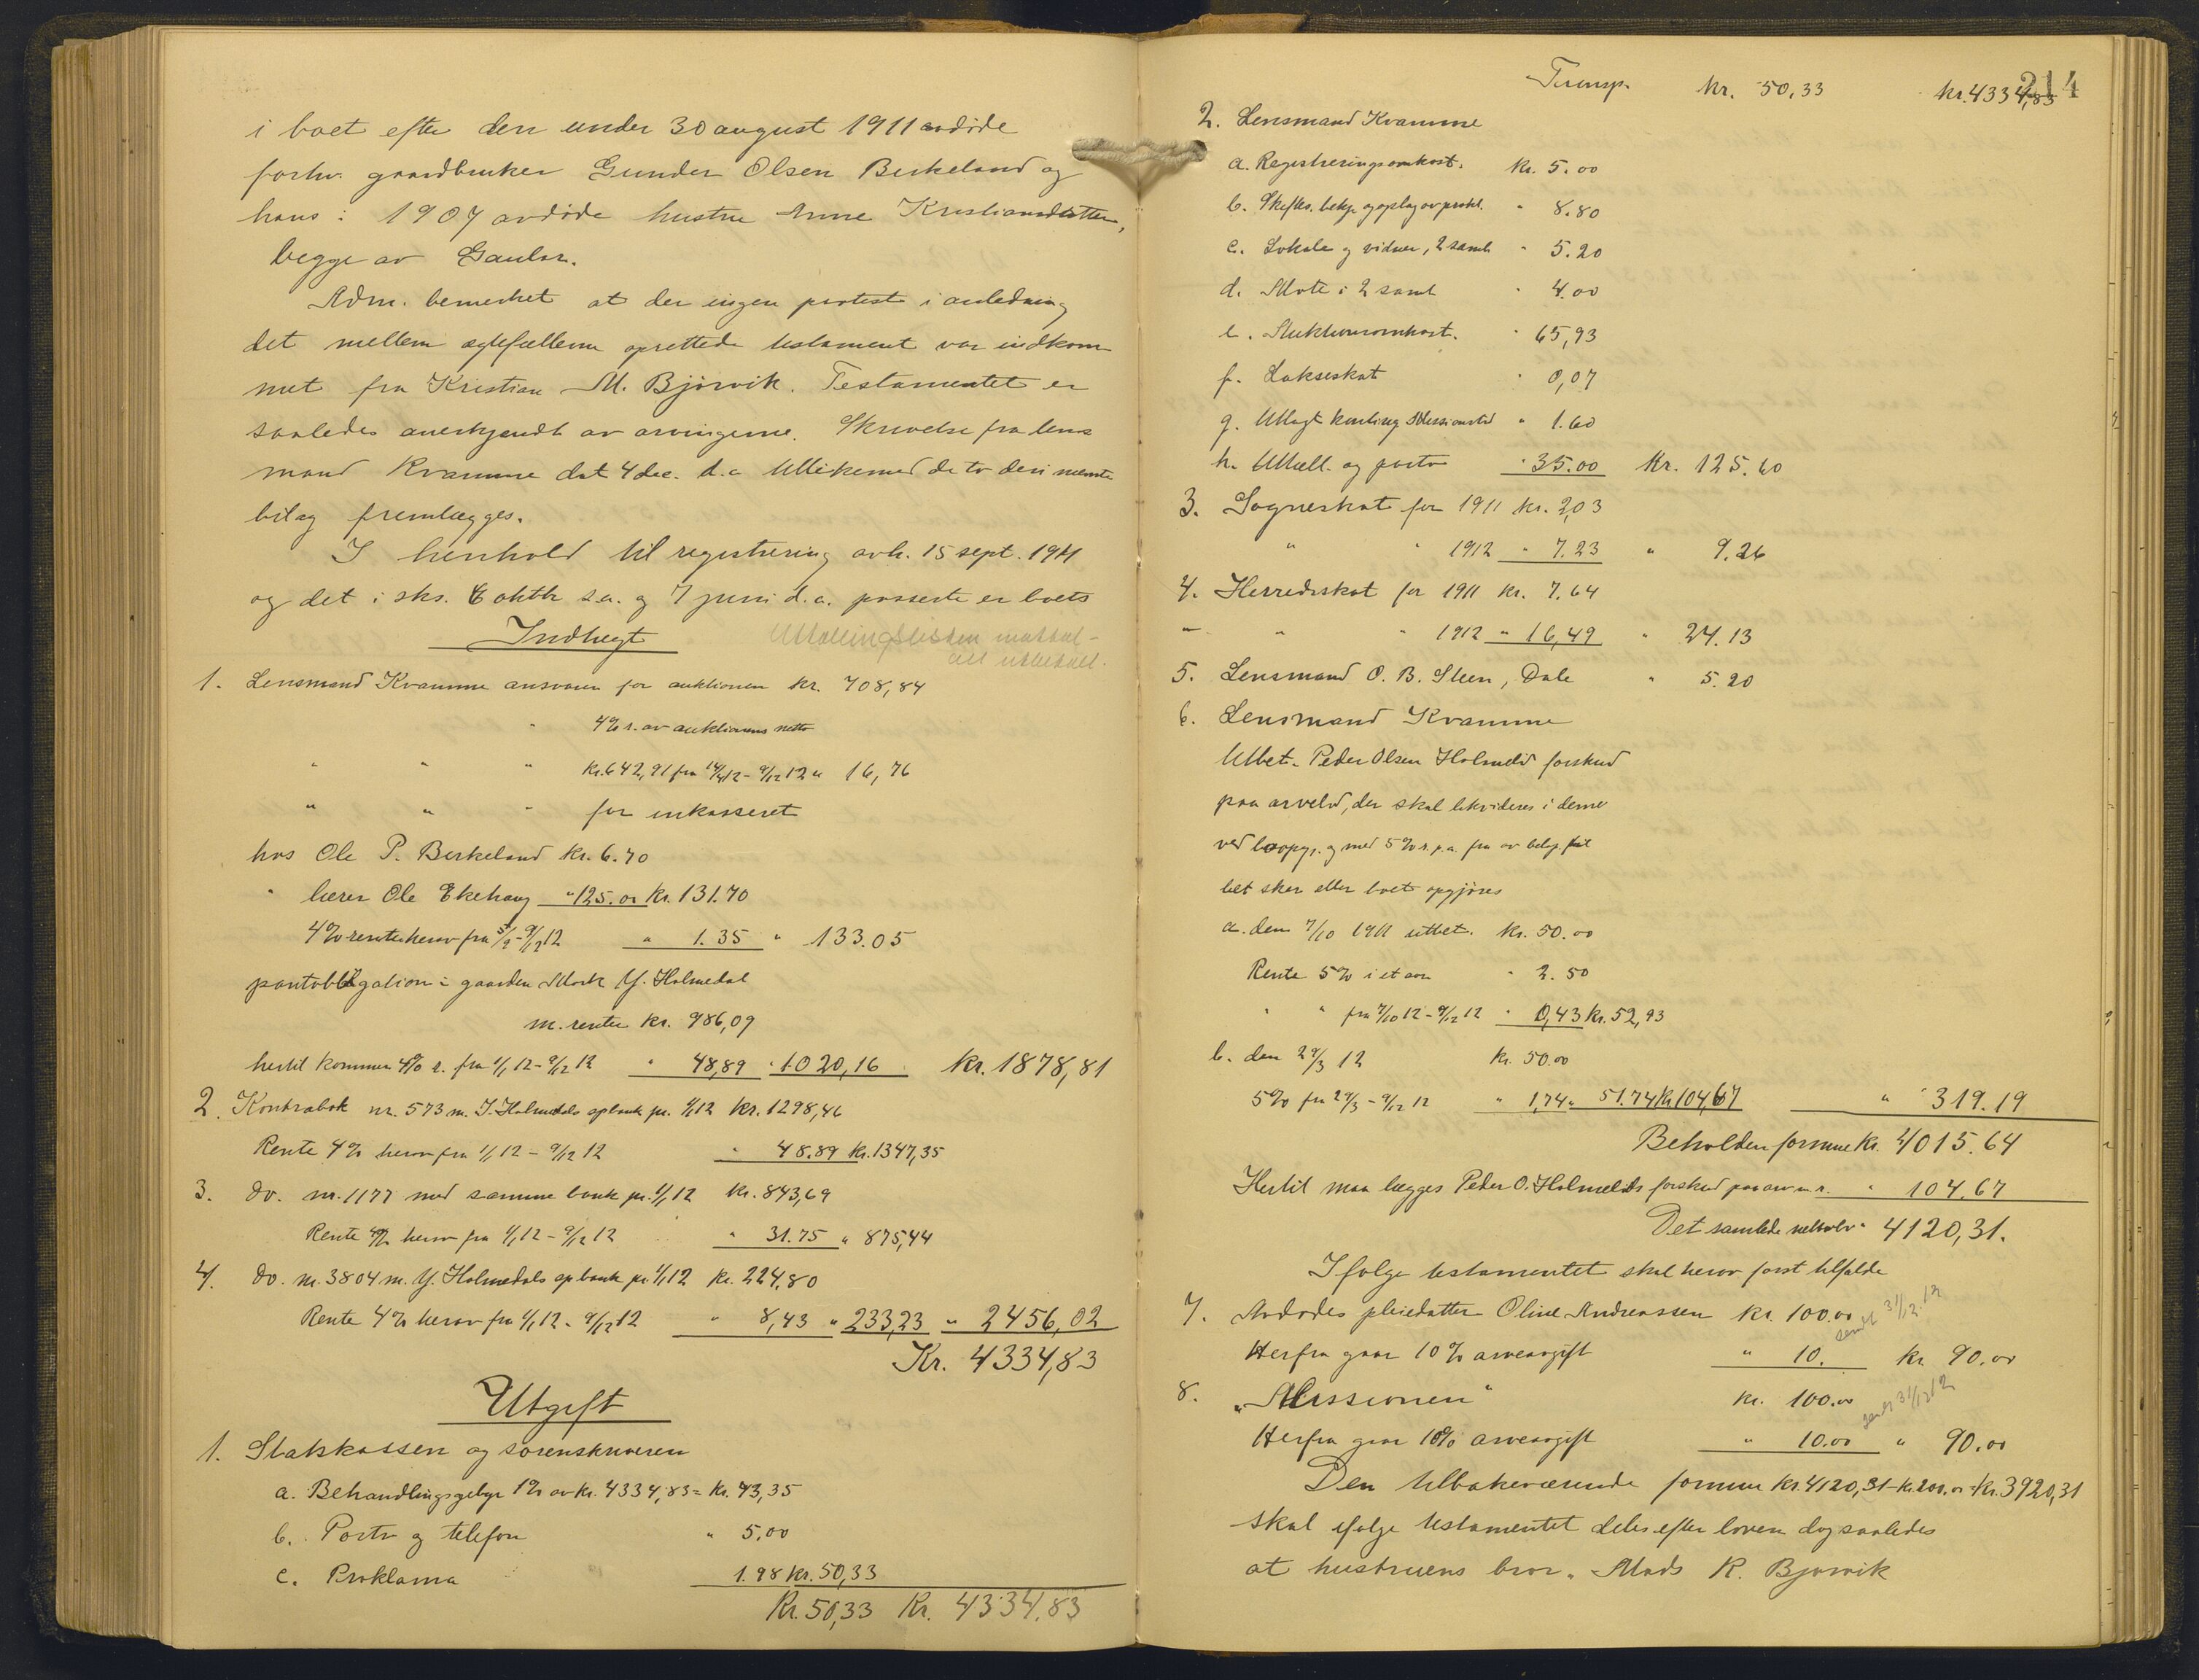 i boet efter den under 30 august 1911 avdøde
forhv. gaardbruker Gunder Olsen Birkeland og
hans i 1907 avdøde hustru Anne Kristiansdatter,
begge av Gaular.
Adm. bemerket at der ingen protest i anledning
det mellem egtefællerne oprettede testament var indkom
met fra Kristian M. Bjørvik. Testamentet er
saaledes anerkjendt av arvingerne. Skrivelse fra lens
mand Kvamme dat 4 dec. d.a. tillikemed de to deri nævnte
bilag fremlægges.
I henhold til registrering avh. 15 sept. 1911
og det i sks. 6 oktbr s.a. og 7 juni d.a. passerte er boets
Indtægt
1. Lensmand Kvamme ansvarer for auktionen kr. 708,84
" 4% r. av auktionens netto
" " " kr. 642,91 fra 14/4 12 - 9/12 12 " 16,76
" " " for inkasseret
hos Ole P. Birkeland kr. 6.70
" lærer Ole Ekehaug " 125.00 kr. 131.70
4% renter herav fra 5/9 - 9/12 12 " 1.35 " 133.05
pantobligation i gaarden Mork Y. Holmedal
m. renter kr. 986,09
hertil kommer 4% r. fra 1/1 12 - 9/12 12 " 48,89 " 1020,16 kr. 1878,81
2. Kontrabok nr. 573 m. I. Holmedals spbank pr. 1/1 12 kr. 1298,46
Rente 4% herav fra 1/1 12 - 9/12 12 " 48.89 kr. 1347,35
3. do. nr. 1177 med samme bank pr. 1/1 12 kr. 843,69
Rente 4% herav fra 1/1 12 - 9/12 12 " 31.75 " 875,44
4. do. nr. 3804 m. Y. Holmedals spbank pr. 1/1 12 kr. 224,80
Rente 4% herav fra 1/1 12 - 9/12 12 " 8,43 " 233,23 " 2456,02
Kr. 4334,83
Utgift
1. Statskassen og sorenskriveren
a. Behandlingsgebyr 1% av kr. 4334,83 = kr. 43,35
b. Porto og telefon " 5,00
c. Proklama 1.98 kr. 50,33
Kr. 50,33 Kr. 4334,83
214
Transp. kr. 50,33 kr. 4334,83
2. Lensmand Kvamme
a. Registreringsomkost. kr. 5.00
b. Skiftes. bekj. og oplag av prokl. " 8.80
c. Lokale og vidner, 2 saml. " 5.20
d. Møte i 2 saml " 4.00
e. Auktionsomkost. " 65,93
f. Lakseskat " 0,07
g. Utlagt " 1.60
h. Uttæll. og porto " 35.00 kr. 125.60
3. Sogneskat for 1911 kr. 2,03
" " 1912 " 7.23 " 9.26
4. Herredsskat for 1911 kr. 7.64
" " " 1912 " 16,49 " 24.13
5. Lensmand O. B. Steen, Dale " 5.20
6. Lensmand Kvamme
Utbet. Peder Olsen Holmelid forskud
paa arvelod, der skal likvideres i denne
ved boopgj. og med 5% r. p.a. fra
bet sker eller boet opgjøres
a. den 7/10 1911 utbet. kr. 50.00
Rente 5% i et aar " 2.50
" " fra 7/10 12 - 9/12 12 " 0,43 kr. 52,93
b. den 29/3 12 kr. 50.00
5% fra 29/3 - 9/12 12 " 1,74 " 51.74 kr. 104,67 " 319.19
Beholden formue kr. 4015.64
Hertil maa lægges Peder O. Holmelids forskud paa arv m.r. " 104.67
Det samlede " 4120,31.
Ifølge testamentet skal herav først tilfalde
7. Avdødes pleiedatter Oline Andreassen kr. 100.00 sendt 31/12.12
Herfra gaar 10% arveavgift " 10. kr 90.00
8. "Missionen" kr. 100.00 sendt 31/12 12
Herfra gaar 10% arveavgift " 10.00 " 90.00
Den tilbakeværende formue kr. 4120,31 - kr. 200.00 = kr. 3920,31
skal ifølge testamentet deles efter loven dog saaledes
at hustruens bror, Mads K. Bjørvik